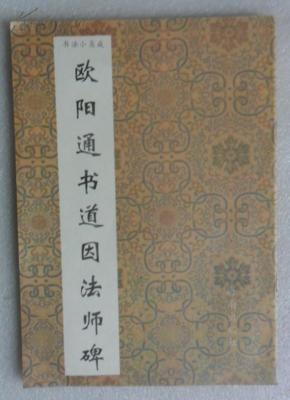 书法小集成
欧阳通书道因法师碑